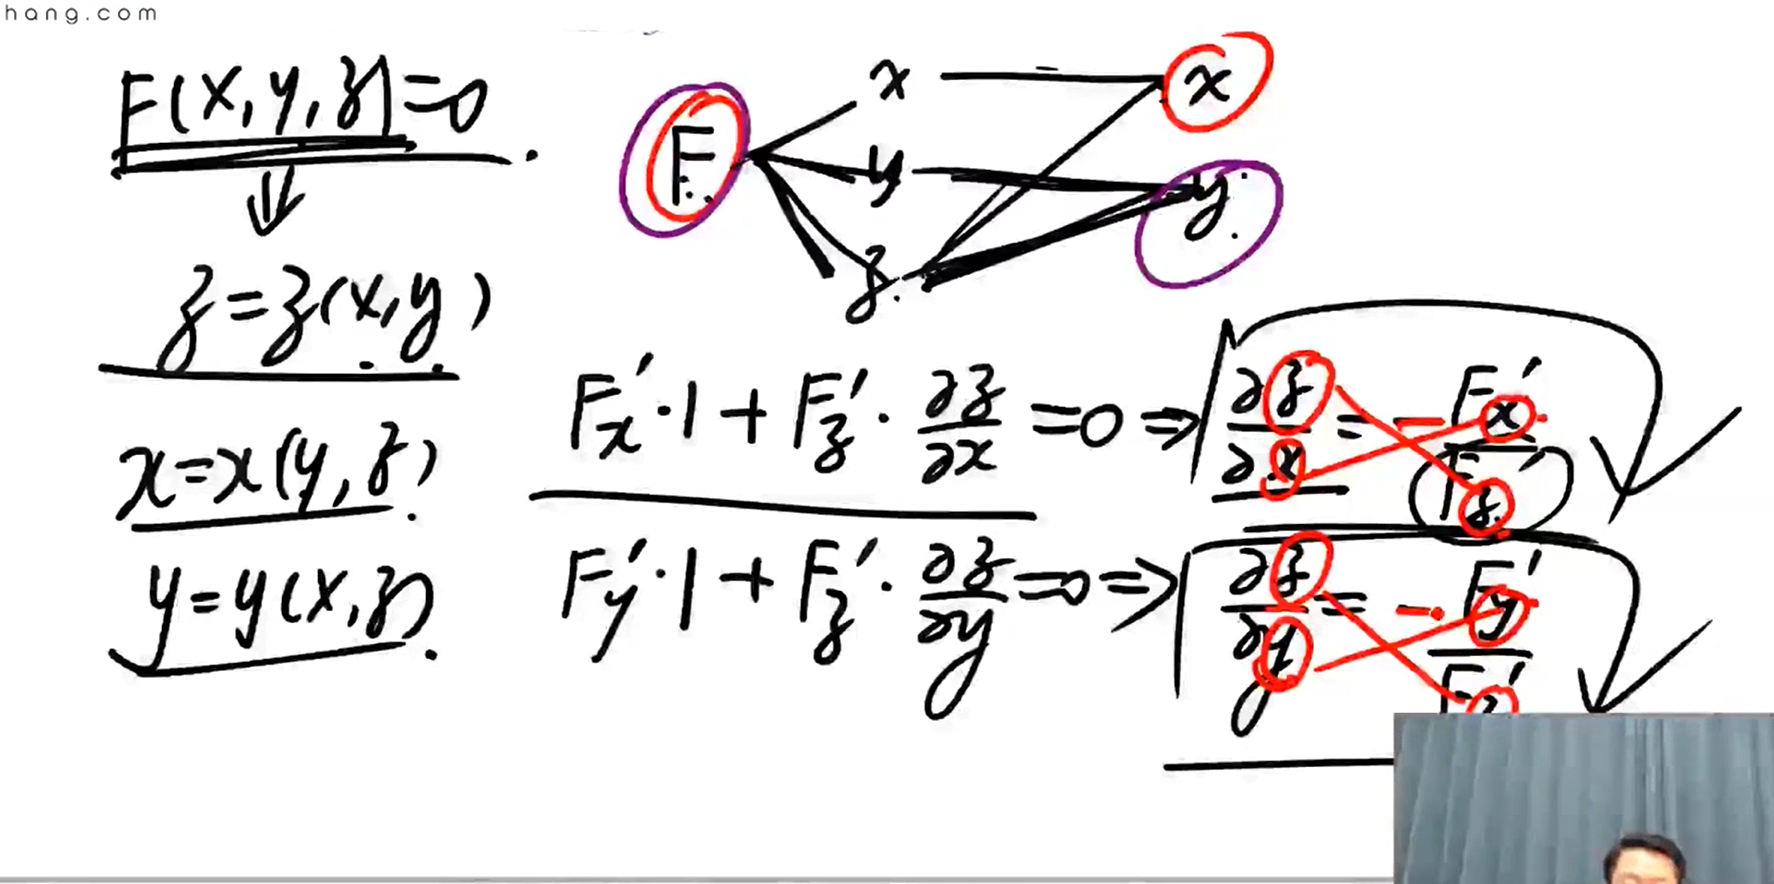 hang.com
F(x,y,z)=0
z=z(x,y)
x=x(y,z)
y=y(x,z)
F x x
y y
z
F'x·1+F'z·∂z/∂x=0⇒∂z/∂x=-F'x/F'z
F'y·1+F'z·∂z/∂y=0⇒∂z/∂y=-F'y/F'z